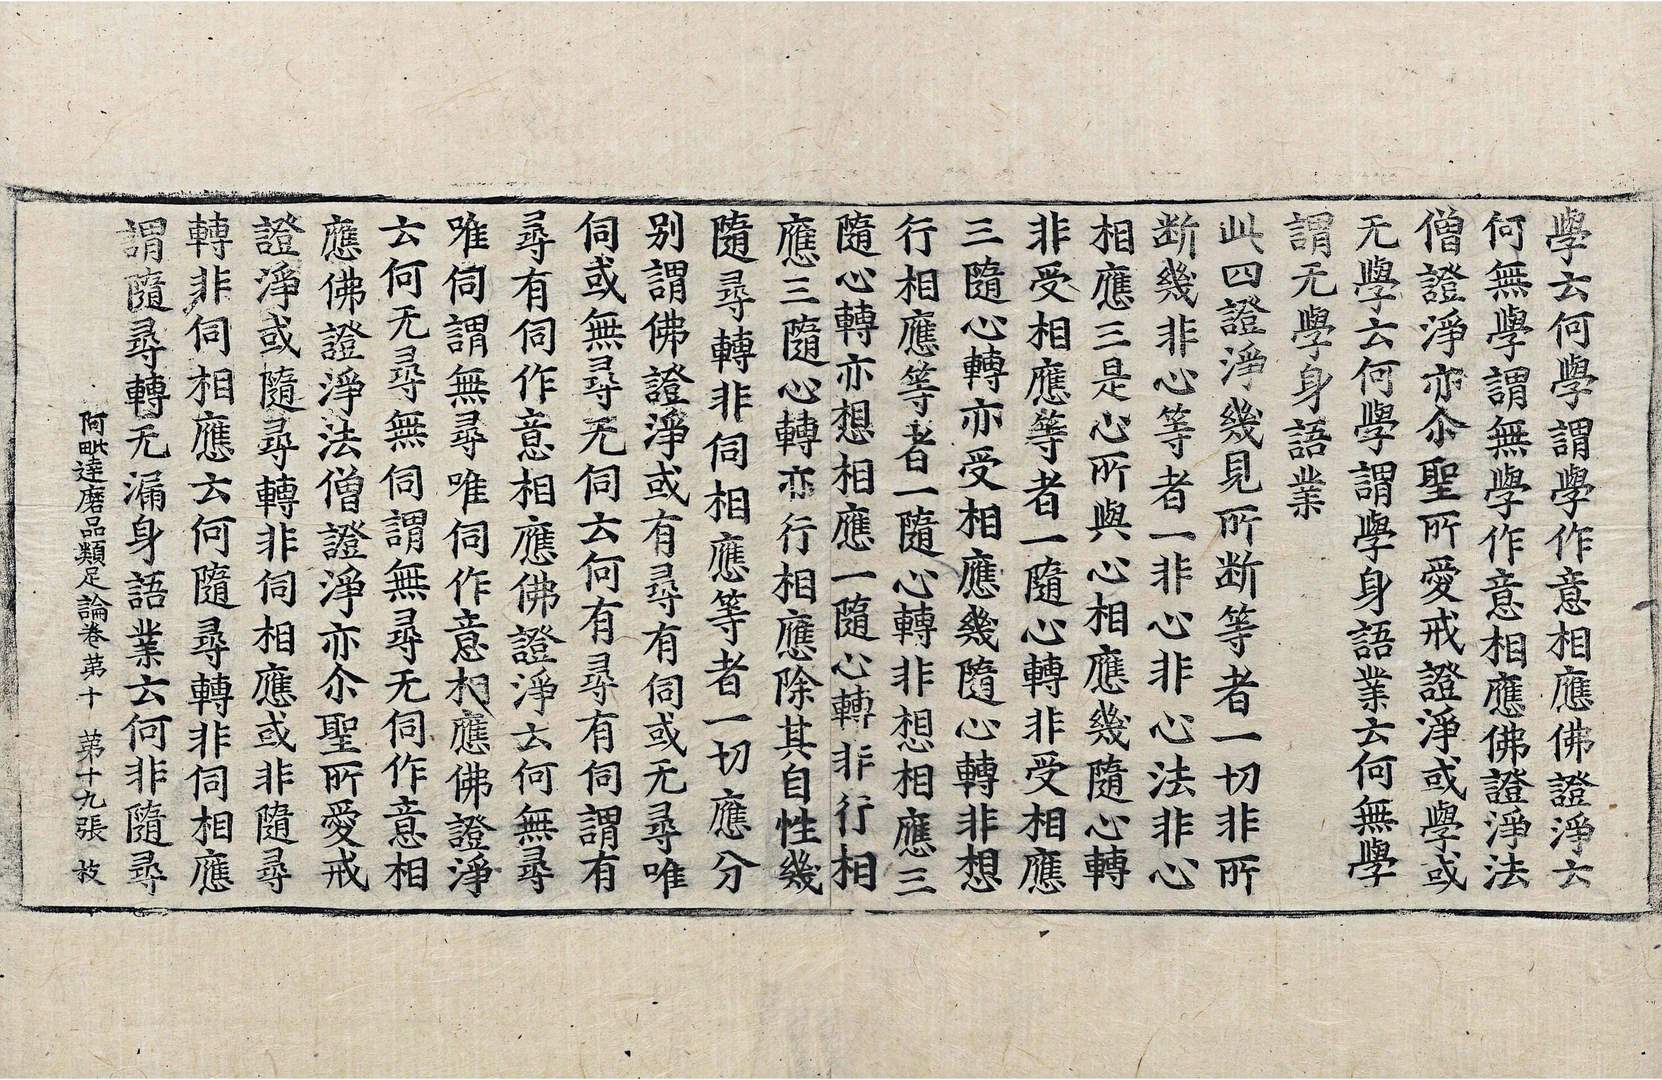 學云何學謂學作意相應佛證淨云
何無學謂無學作意相應佛證淨法
僧證淨亦尒聖所愛戒證淨或學或
无學云何學謂學身語業云何無學
謂无學身語業
此四證淨幾見所断等者一切非所
断幾非心等者一非心非心法非心
相應三是心所與心相應幾隨心轉
非受相應等者一隨心轉非受相應
三隨心轉亦受相應幾隨心轉非想
行相應等者一隨心轉非想相應三
隨心轉亦想相應一隨心轉非行相
應三隨心轉亦行相應除其自性幾
隨尋轉非伺相應等者一切應分
別謂佛證淨或有尋有伺或无尋唯
伺或無尋无伺云何有尋有伺謂有
尋有伺作意相應佛證淨云何無尋
唯伺謂無尋唯伺作意相應佛證淨
云何无尋無伺謂無尋无伺作意相
應佛證淨法僧證淨亦尒聖所愛戒
證淨或隨尋轉非伺相應或非隨尋
轉非伺相應云何隨尋轉非伺相應
謂隨尋轉无漏身語業云何非隨尋
阿毗達磨品類足論卷苐十 苐十九張 技